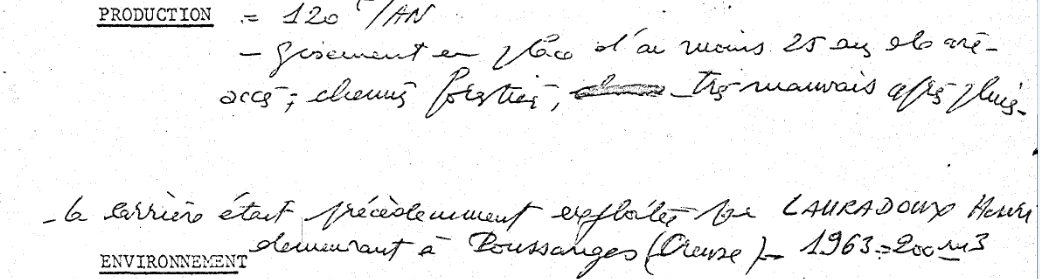 PRODUCTION = 120 T/AN
- gisement en place d'au moins 25 ans de
accès; chemins forestier, très mauvais après pluies -
- la carrière était précédemment exploitée par LAURADOUX Henri
demeurant à Poussanges (Creuse) - 1963 = 200 m3
ENVIRONNEMENT